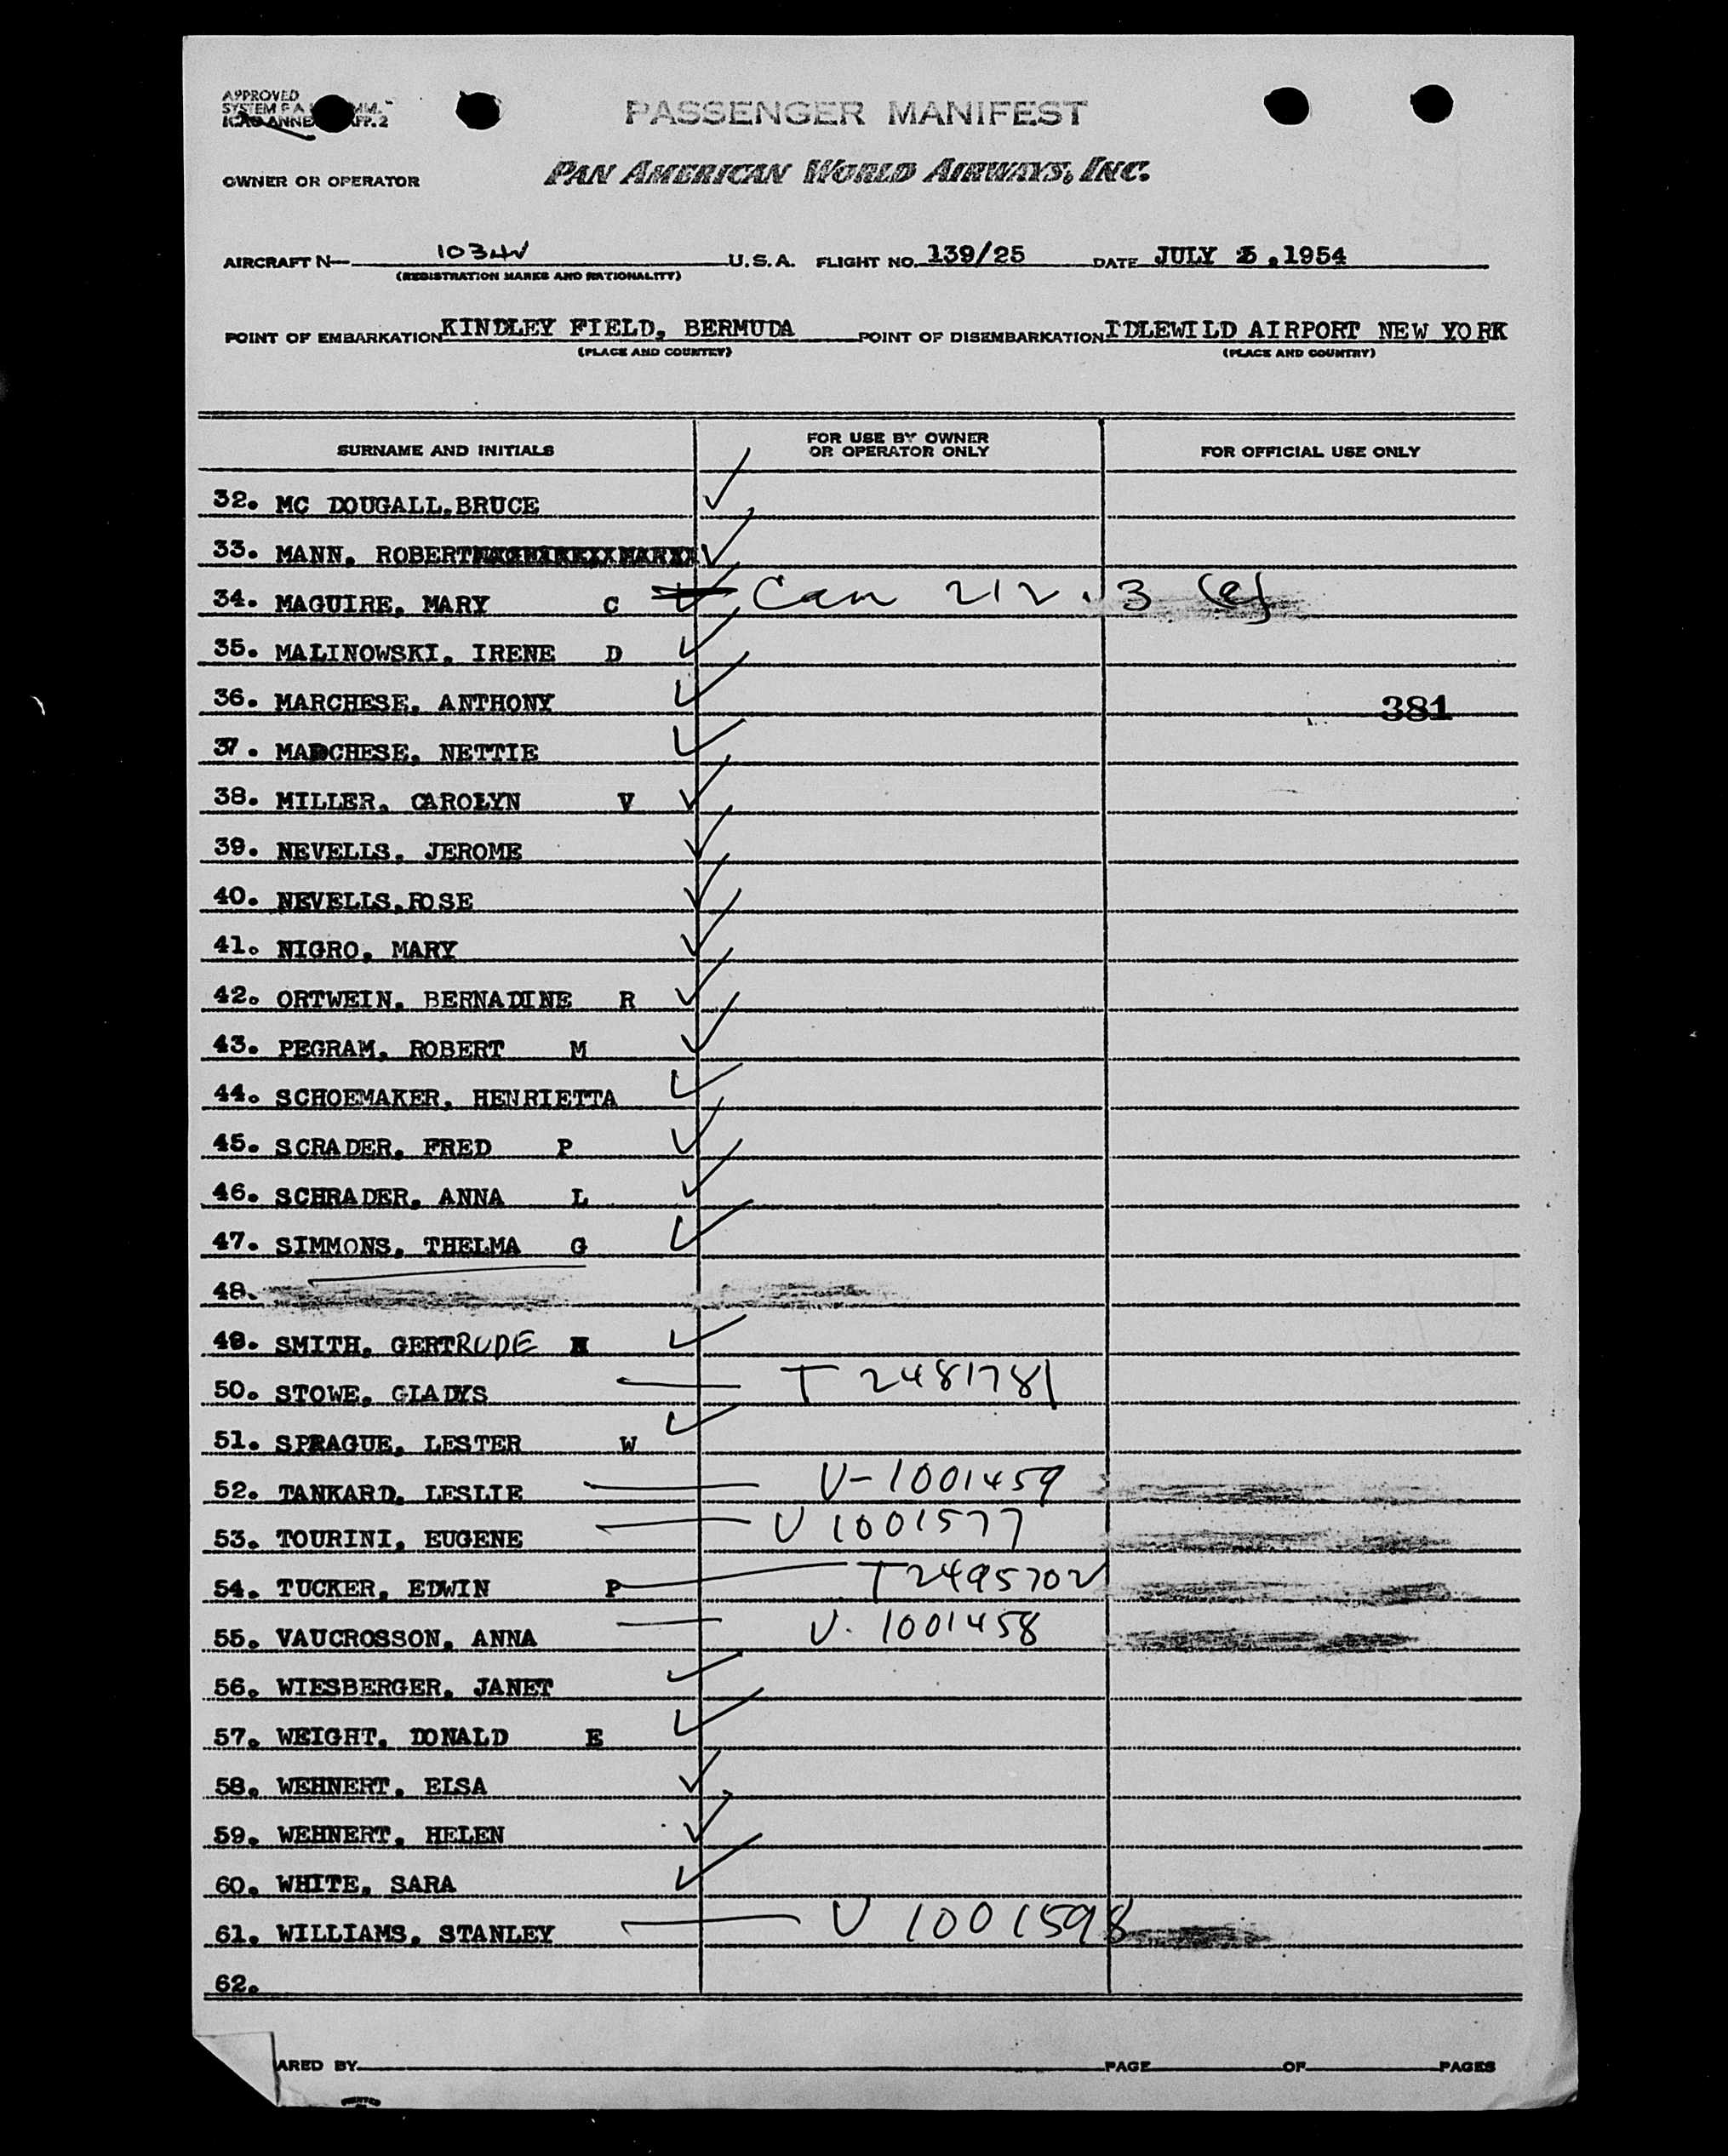 APPROVED
SYSTEM F.A. MM.
ICAO ANNE APP. 2
PASSENGER MANIFEST
OWNER OR OPERATOR PAN AMERICAN WORLD AIRWAYS, INC.
AIRCRAFT N 1034V U.S.A. FLIGHT NO. 139/25 DATE JULY 5, 1954
(REGISTRATION MARKS AND NATIONALITY)
POINT OF EMBARKATION KINDLEY FIELD, BERMUDA POINT OF DISEMBARKATION IDLEWILD AIRPORT NEW YORK
(PLACE AND COUNTRY) (PLACE AND COUNTRY)
SURNAME AND INITIALS FOR USE BY OWNER OR OPERATOR ONLY FOR OFFICIAL USE ONLY
32. MC DOUGALL,BRUCE
33. MANN, ROBERT
34. MAGUIRE, MARY C Can 212.3 (e)
35. MALINOWSKI, IRENE D
36. MARCHESE, ANTHONY 381
37. MADCHESE, NETTIE
38. MILLER, CAROLYN V
39. NEVELLS, JEROME
40. NEVELLS,ROSE
41. NIGRO, MARY
42. ORTWEIN, BERNADINE R
43. PEGRAM, ROBERT M
44. SCHOEMAKER, HENRIETTA
45. SCRADER, FRED P
46. SCHRADER, ANNA L
47. SIMMONS, THELMA G
48.
49. SMITH, GERTRUDE
50. STOWE, GLADYS T 2481781
51. SPRAGUE, LESTER W
52. TANKARD, LESLIE V-1001459
53. TOURINI, EUGENE V 1001577
54. TUCKER, EDWIN P T2495702
55. VAUCROSSON, ANNA V. 1001458
56. WIESBERGER, JANET
57. WEIGHT, DONALD E
58. WEHNERT, ELSA
59. WEHNERT, HELEN
60. WHITE, SARA
61. WILLIAMS, STANLEY V 1001598
62.
ARED BY PAGE OF PAGES
PRINTED